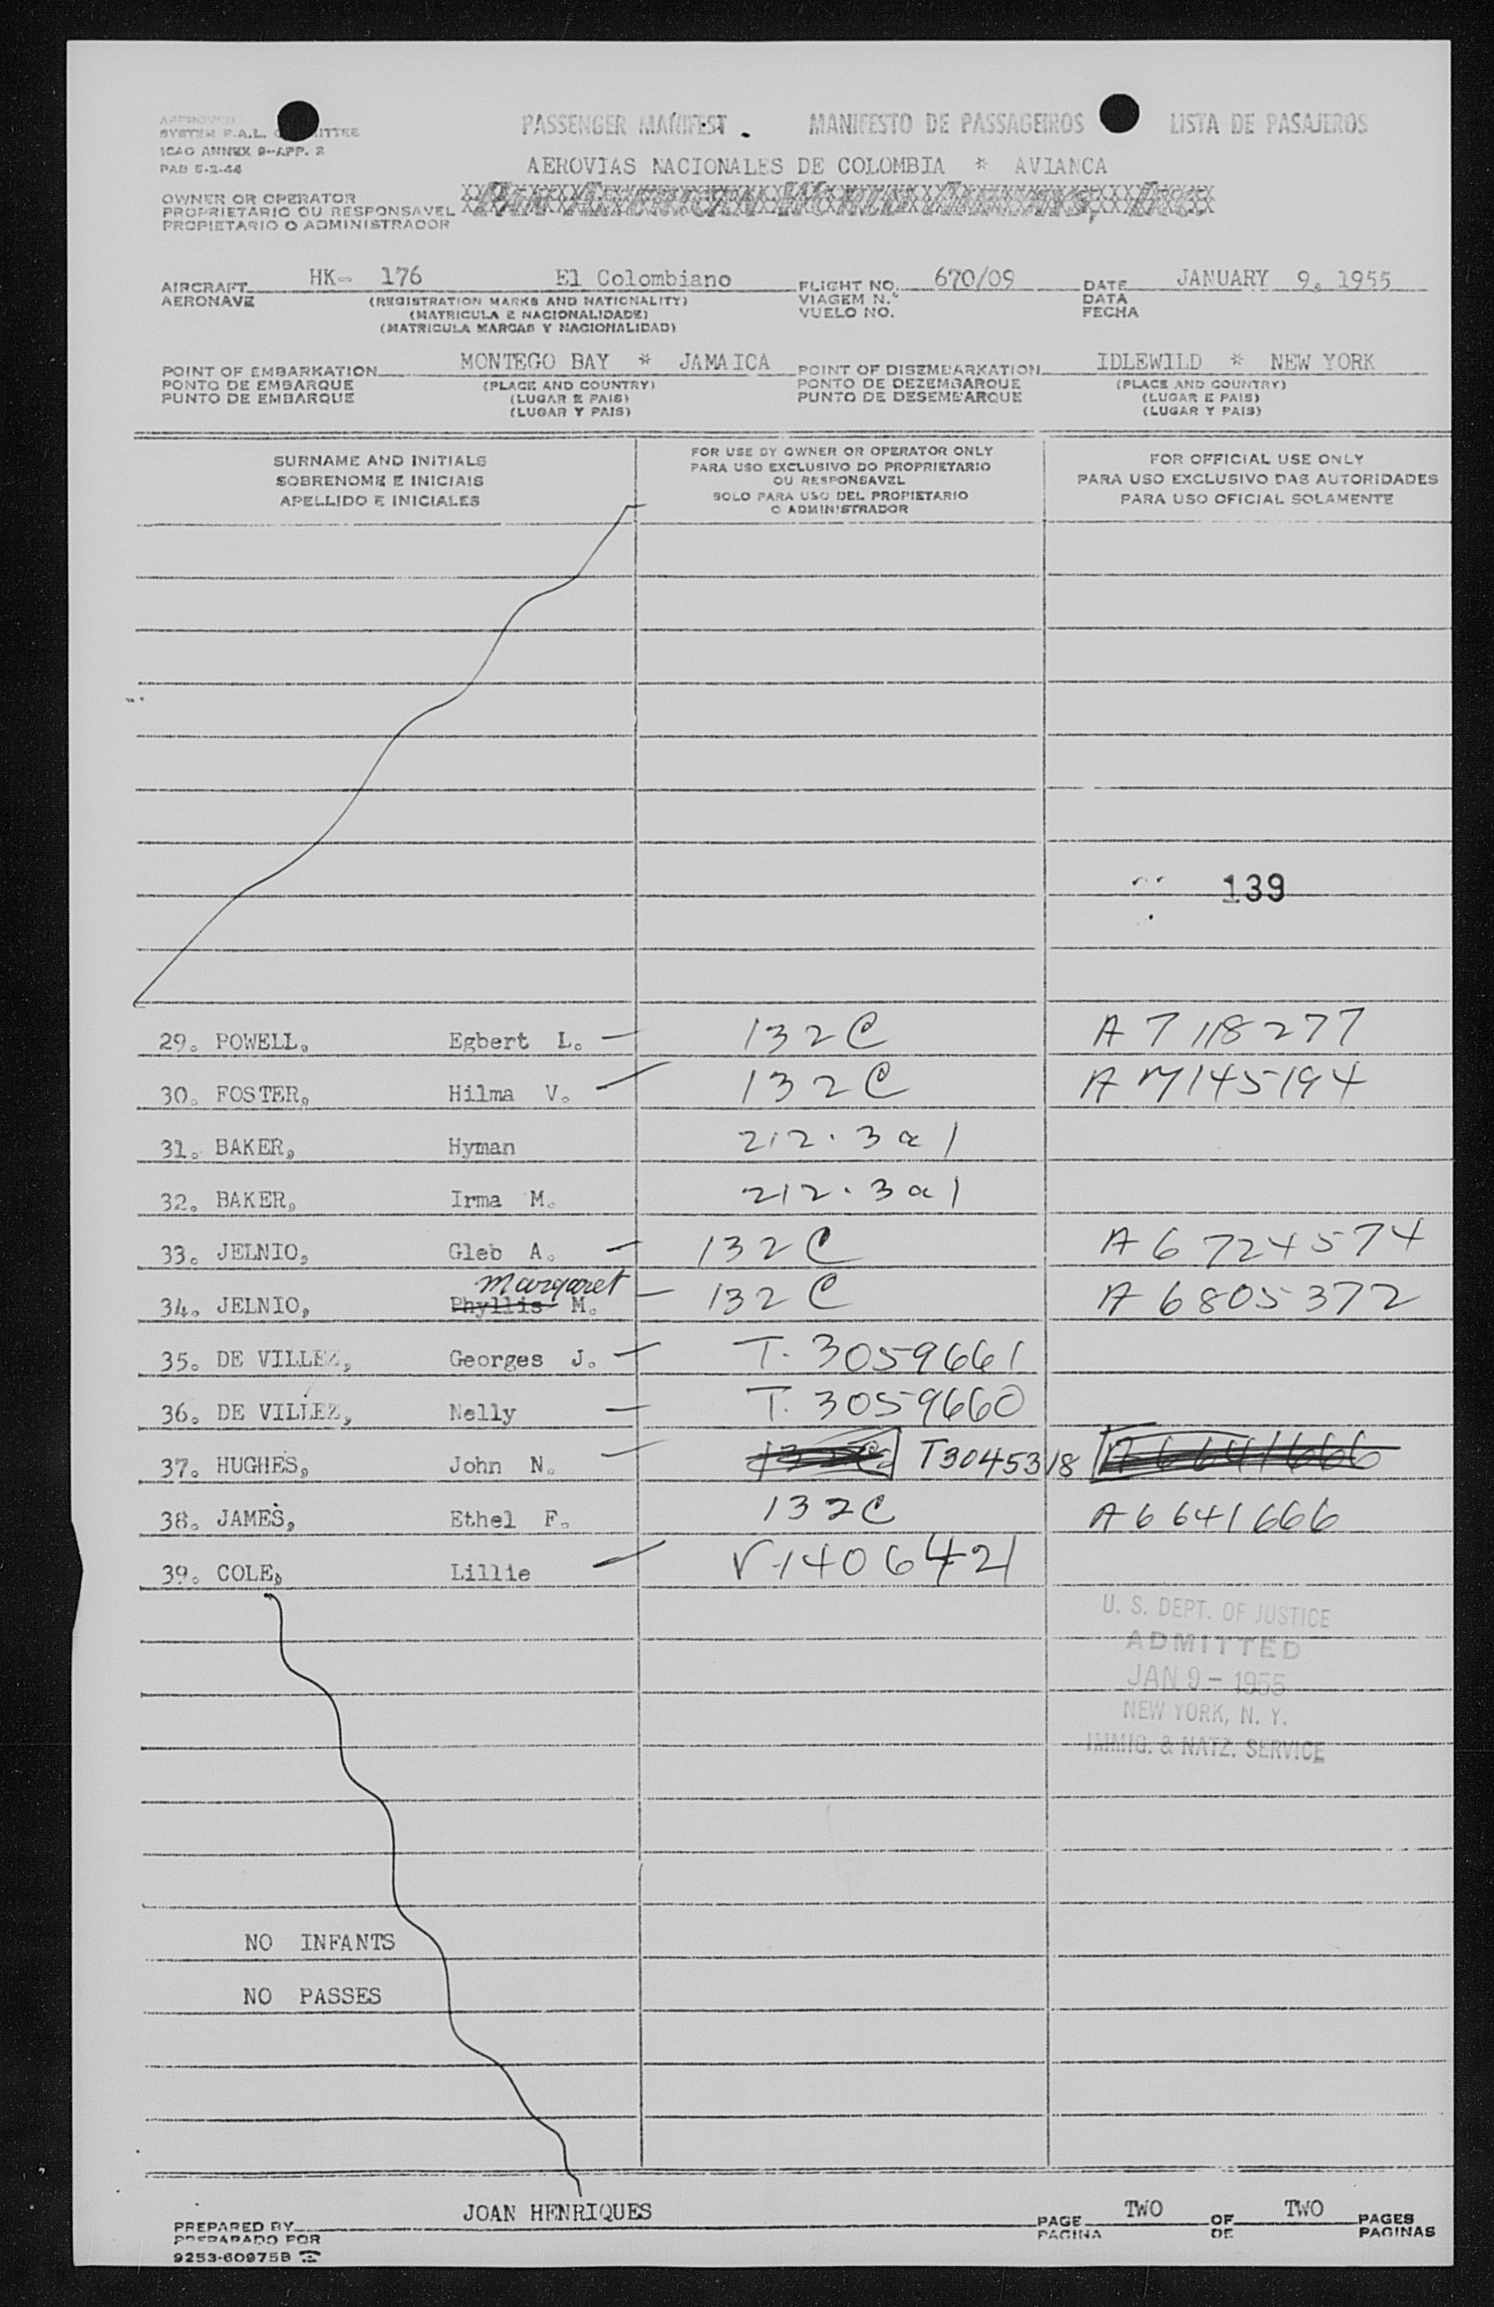 APPROVED
SYSTEM F.A.L. COMMITTEE
ICAO ANNEX 9-APP. 2
PAB 5-2-44
PASSENGER MANIFEST . MANIFESTO DE PASSAGEIROS LISTA DE PASAJEROS
AEROVIAS NACIONALES DE COLOMBIA * AVIANCA
OWNER OR OPERATOR
PROPRIETARIO OU RESPONSAVEL
PROPIETARIO O ADMINISTRADOR
PAN AMERICAN WORLD AIRWAYS, INC.
AIRCRAFT HK- 176 El Colombiano FLIGHT NO. 670/09 DATE JANUARY 9, 1955
AERONAVE (REGISTRATION MARKS AND NATIONALITY) VIAGEM N.º DATA
(MATRICULA E NACIONALIDADE) VUELO NO. FECHA
(MATRICULA MARCAS Y NACIONALIDAD)
POINT OF EMBARKATION MONTEGO BAY * JAMAICA POINT OF DISEMBARKATION IDLEWILD * NEW YORK
PONTO DE EMBARQUE (PLACE AND COUNTRY) PONTO DE DEZEMBARQUE (PLACE AND COUNTRY)
PUNTO DE EMBARQUE (LUGAR E PAIS) PUNTO DE DESEMBARQUE (LUGAR E PAIS)
(LUGAR Y PAIS) (LUGAR Y PAIS)
SURNAME AND INITIALS
SOBRENOME E INICIAIS
APELLIDO E INICIALES
FOR USE BY OWNER OR OPERATOR ONLY
PARA USO EXCLUSIVO DO PROPRIETARIO
OU RESPONSAVEL
SOLO PARA USO DEL PROPIETARIO
O ADMINISTRADOR
FOR OFFICIAL USE ONLY
PARA USO EXCLUSIVO DAS AUTORIDADES
PARA USO OFICIAL SOLAMENTE
139
29. POWELL, Egbert L. — 132C A 7 118277
30. FOSTER, Hilma V. — 132C A 7145194
31. BAKER, Hyman 212.3a1
32. BAKER, Irma M. 212.3a1
33. JELNIO, Gleb A. — 132C A6724574
Margaret
34. JELNIO, Phyllis M. — 132C A6805372
35. DE VILLEZ, Georges J. — T. 3059661
36. DE VILLEZ, Nelly — T. 3059660
37. HUGHES, John N. — 132C T3045318 A6641666
38. JAMES, Ethel F. 132C A6641666
39. COLE, Lillie — V-1406421
U. S. DEPT. OF JUSTICE
ADMITTED
JAN 9 - 1955
NEW YORK, N. Y.
IMMIG. & NATZ. SERVICE
NO INFANTS
NO PASSES
PREPARED BY JOAN HENRIQUES PAGE TWO OF TWO PAGES
PREPARADO POR PAGINA DE PAGINAS
9253-60975B